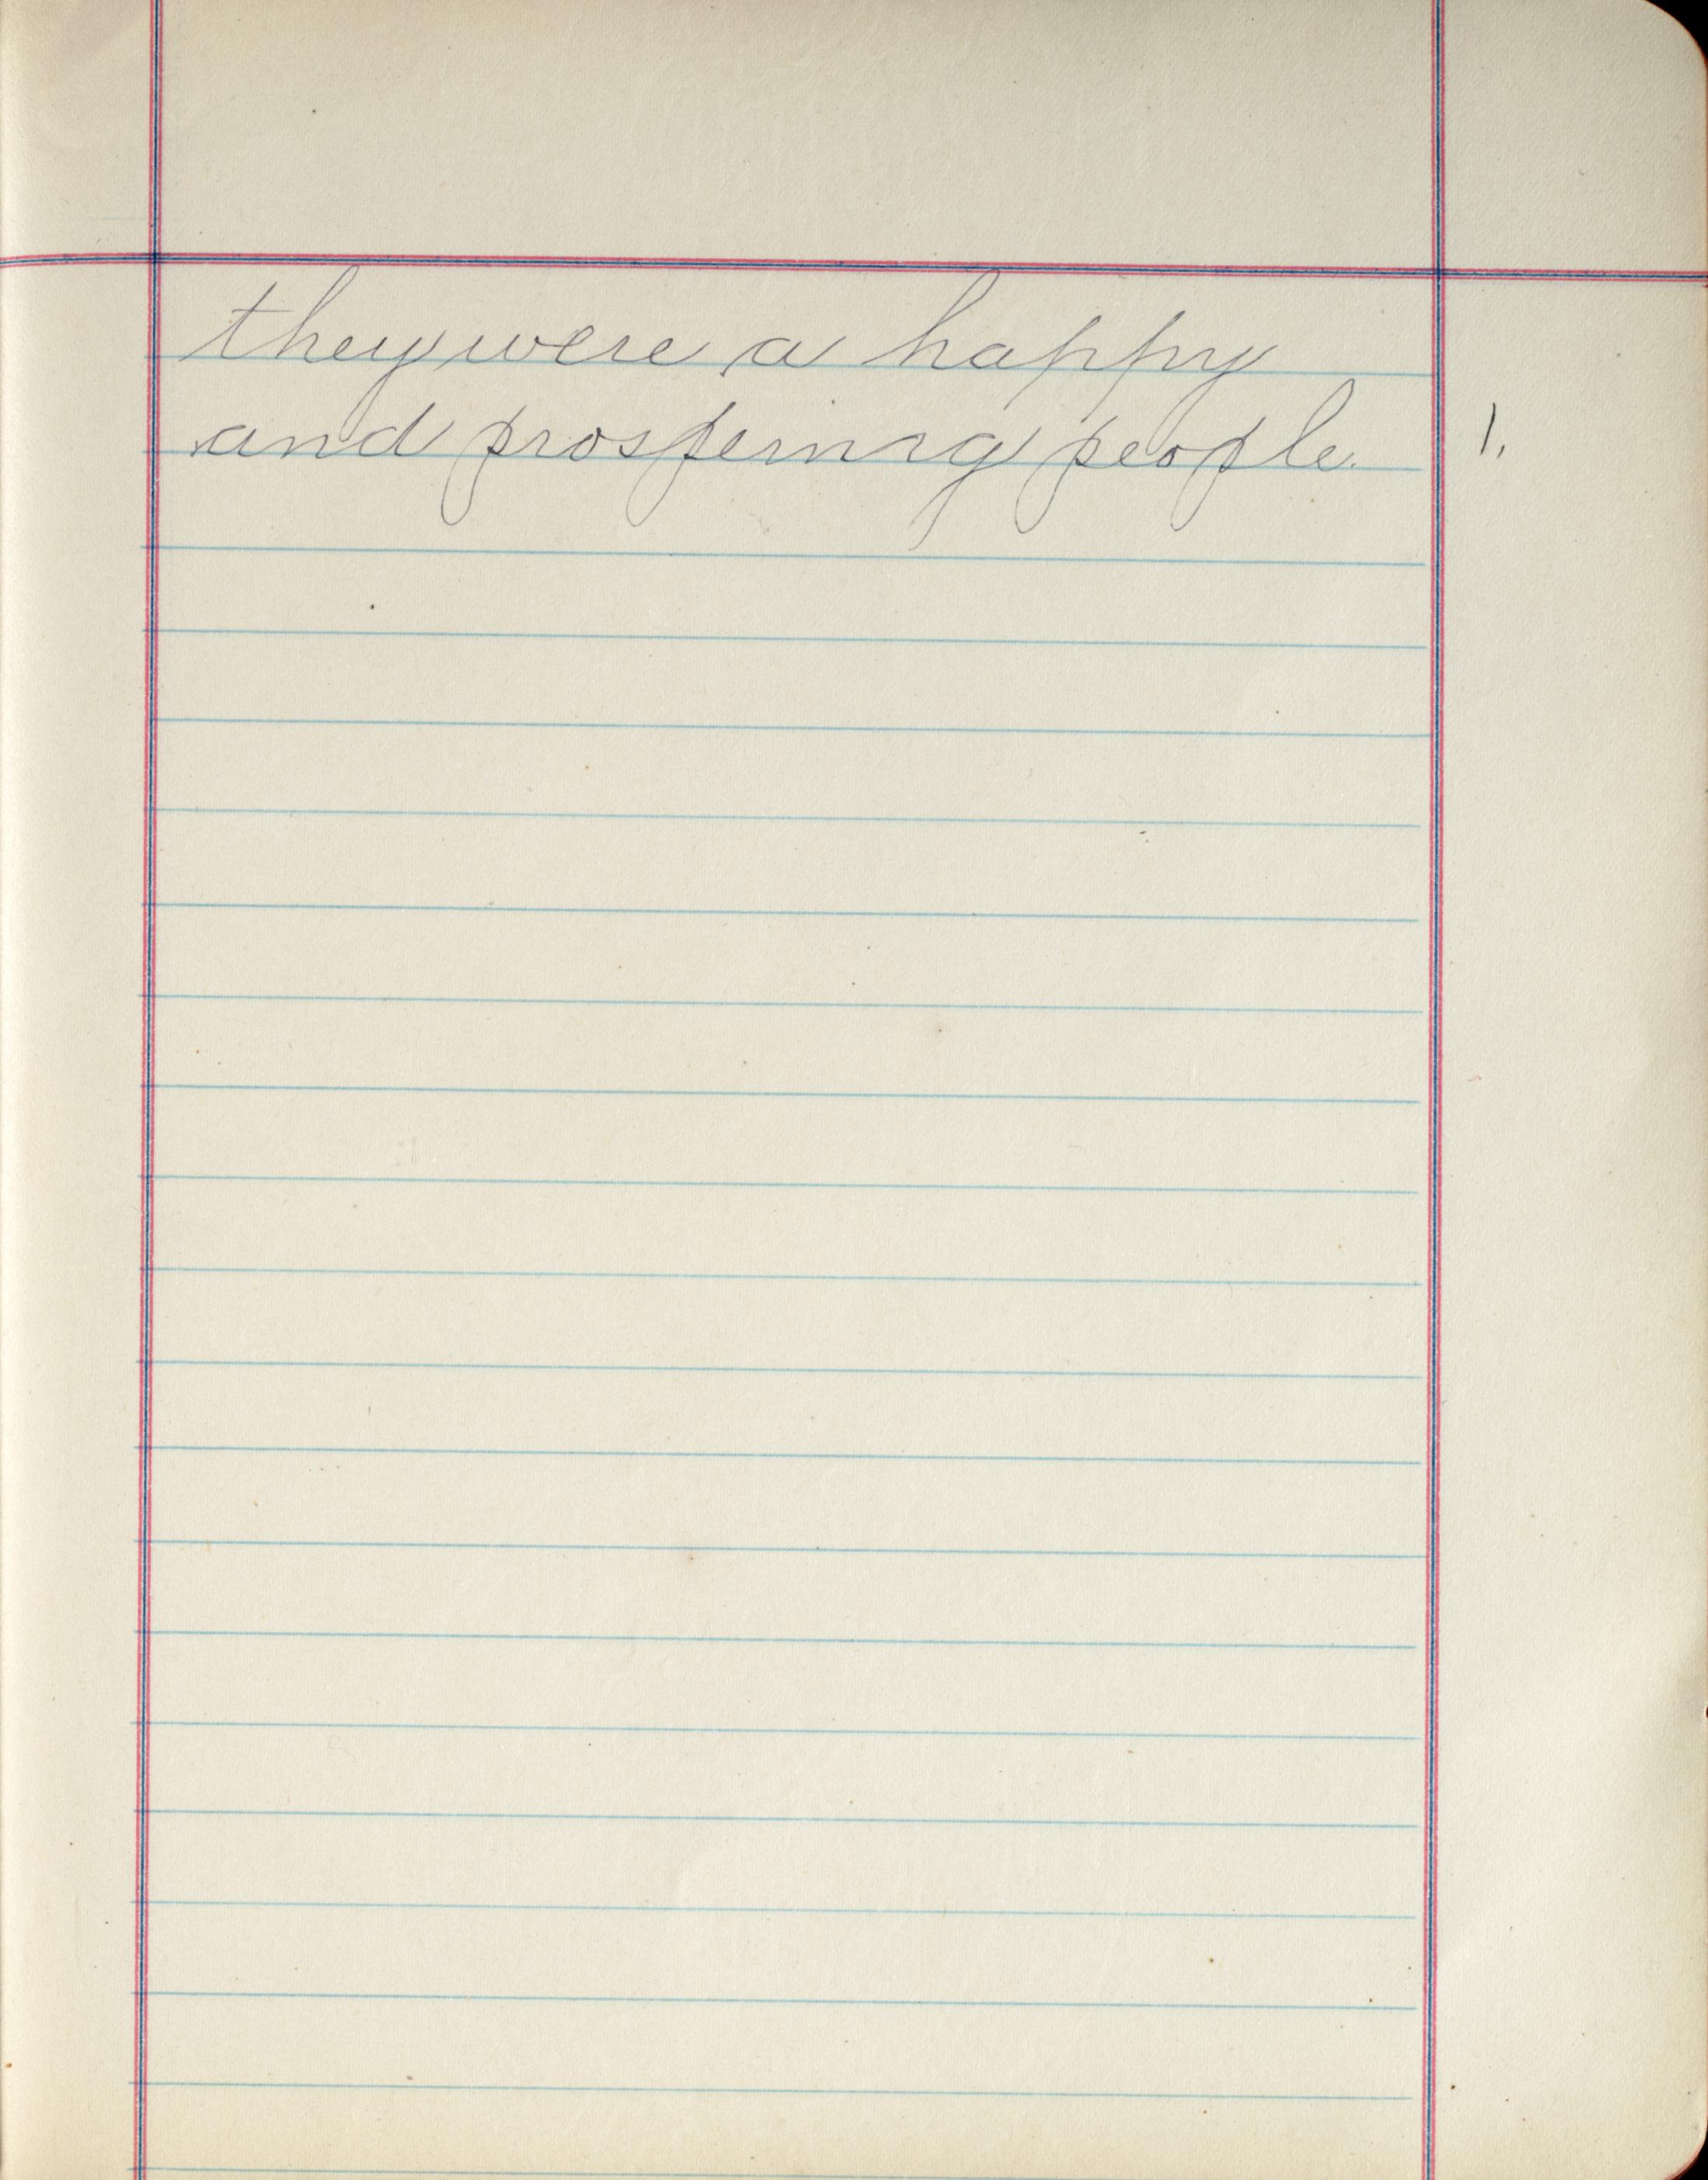 they were a happy
and prospering people. 1.